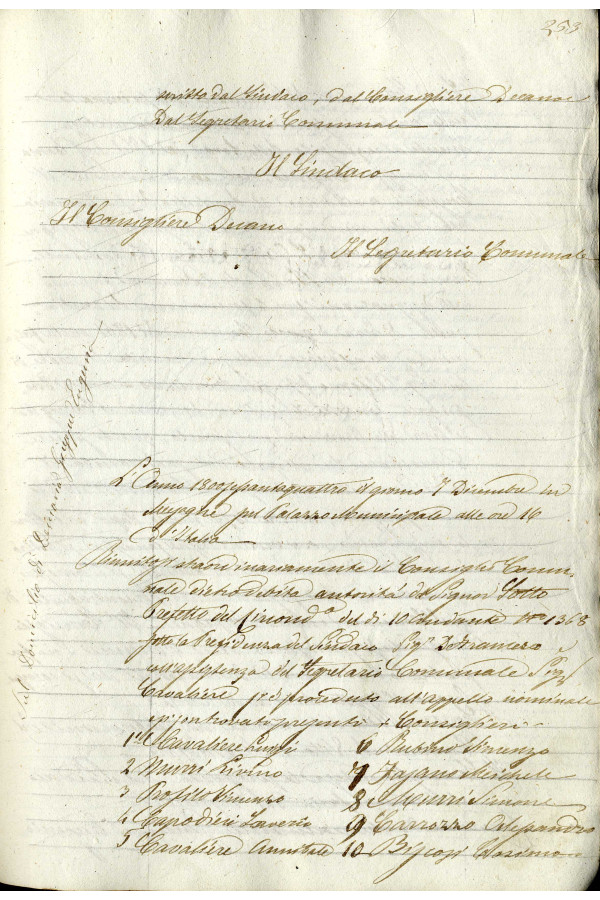 253
scritto dal Sindaco, dal Consigliere Decano e
Dal Segretario Comunale
Il Sindaco
Il Consigliere Decano
Il Segretario Comunale
L'Anno 1800sessantaquattro il giorno 7 Dicembre in
nel Palazzo Municipale alle ore 16
d'Italia
Riunitosi straordinariamente il Consiglio Comu-
nale dietro debita autorità del Signor Sotto
Prefetto del Circond.º del dì 10 andante Nº 1368
sotto la Presidenza del Sindaco Sig.r DeFrancesco e
coll'assistenza del Segretario Comunale Sig.r
Cavaliere si è proceduto all'appello nominale
e si son trovati presenti i Consiglieri
1º Cavaliere Luigi
2 Livino
3 Profilo Vincenzo
4 Capodieci Saverio
5 Cavaliere Annibale
6 Rubino Vincenzo
7 Fajano Michele
8 Murri Simone
9 Carrozzo Alessandro
10 Biscozi
Sul Domicilio di Giuseppe Eugenio